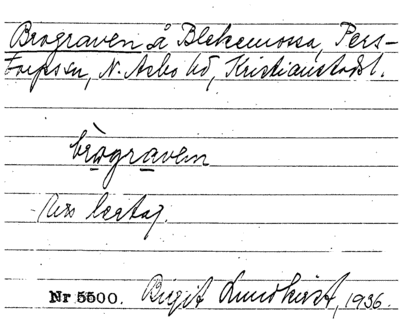 Brograven å Blekemossa, Pers-
torps sn, N. Asbo hd, Kristianstads l.
brograven
Nr 5500. Birgit Lundkvist, 1936.